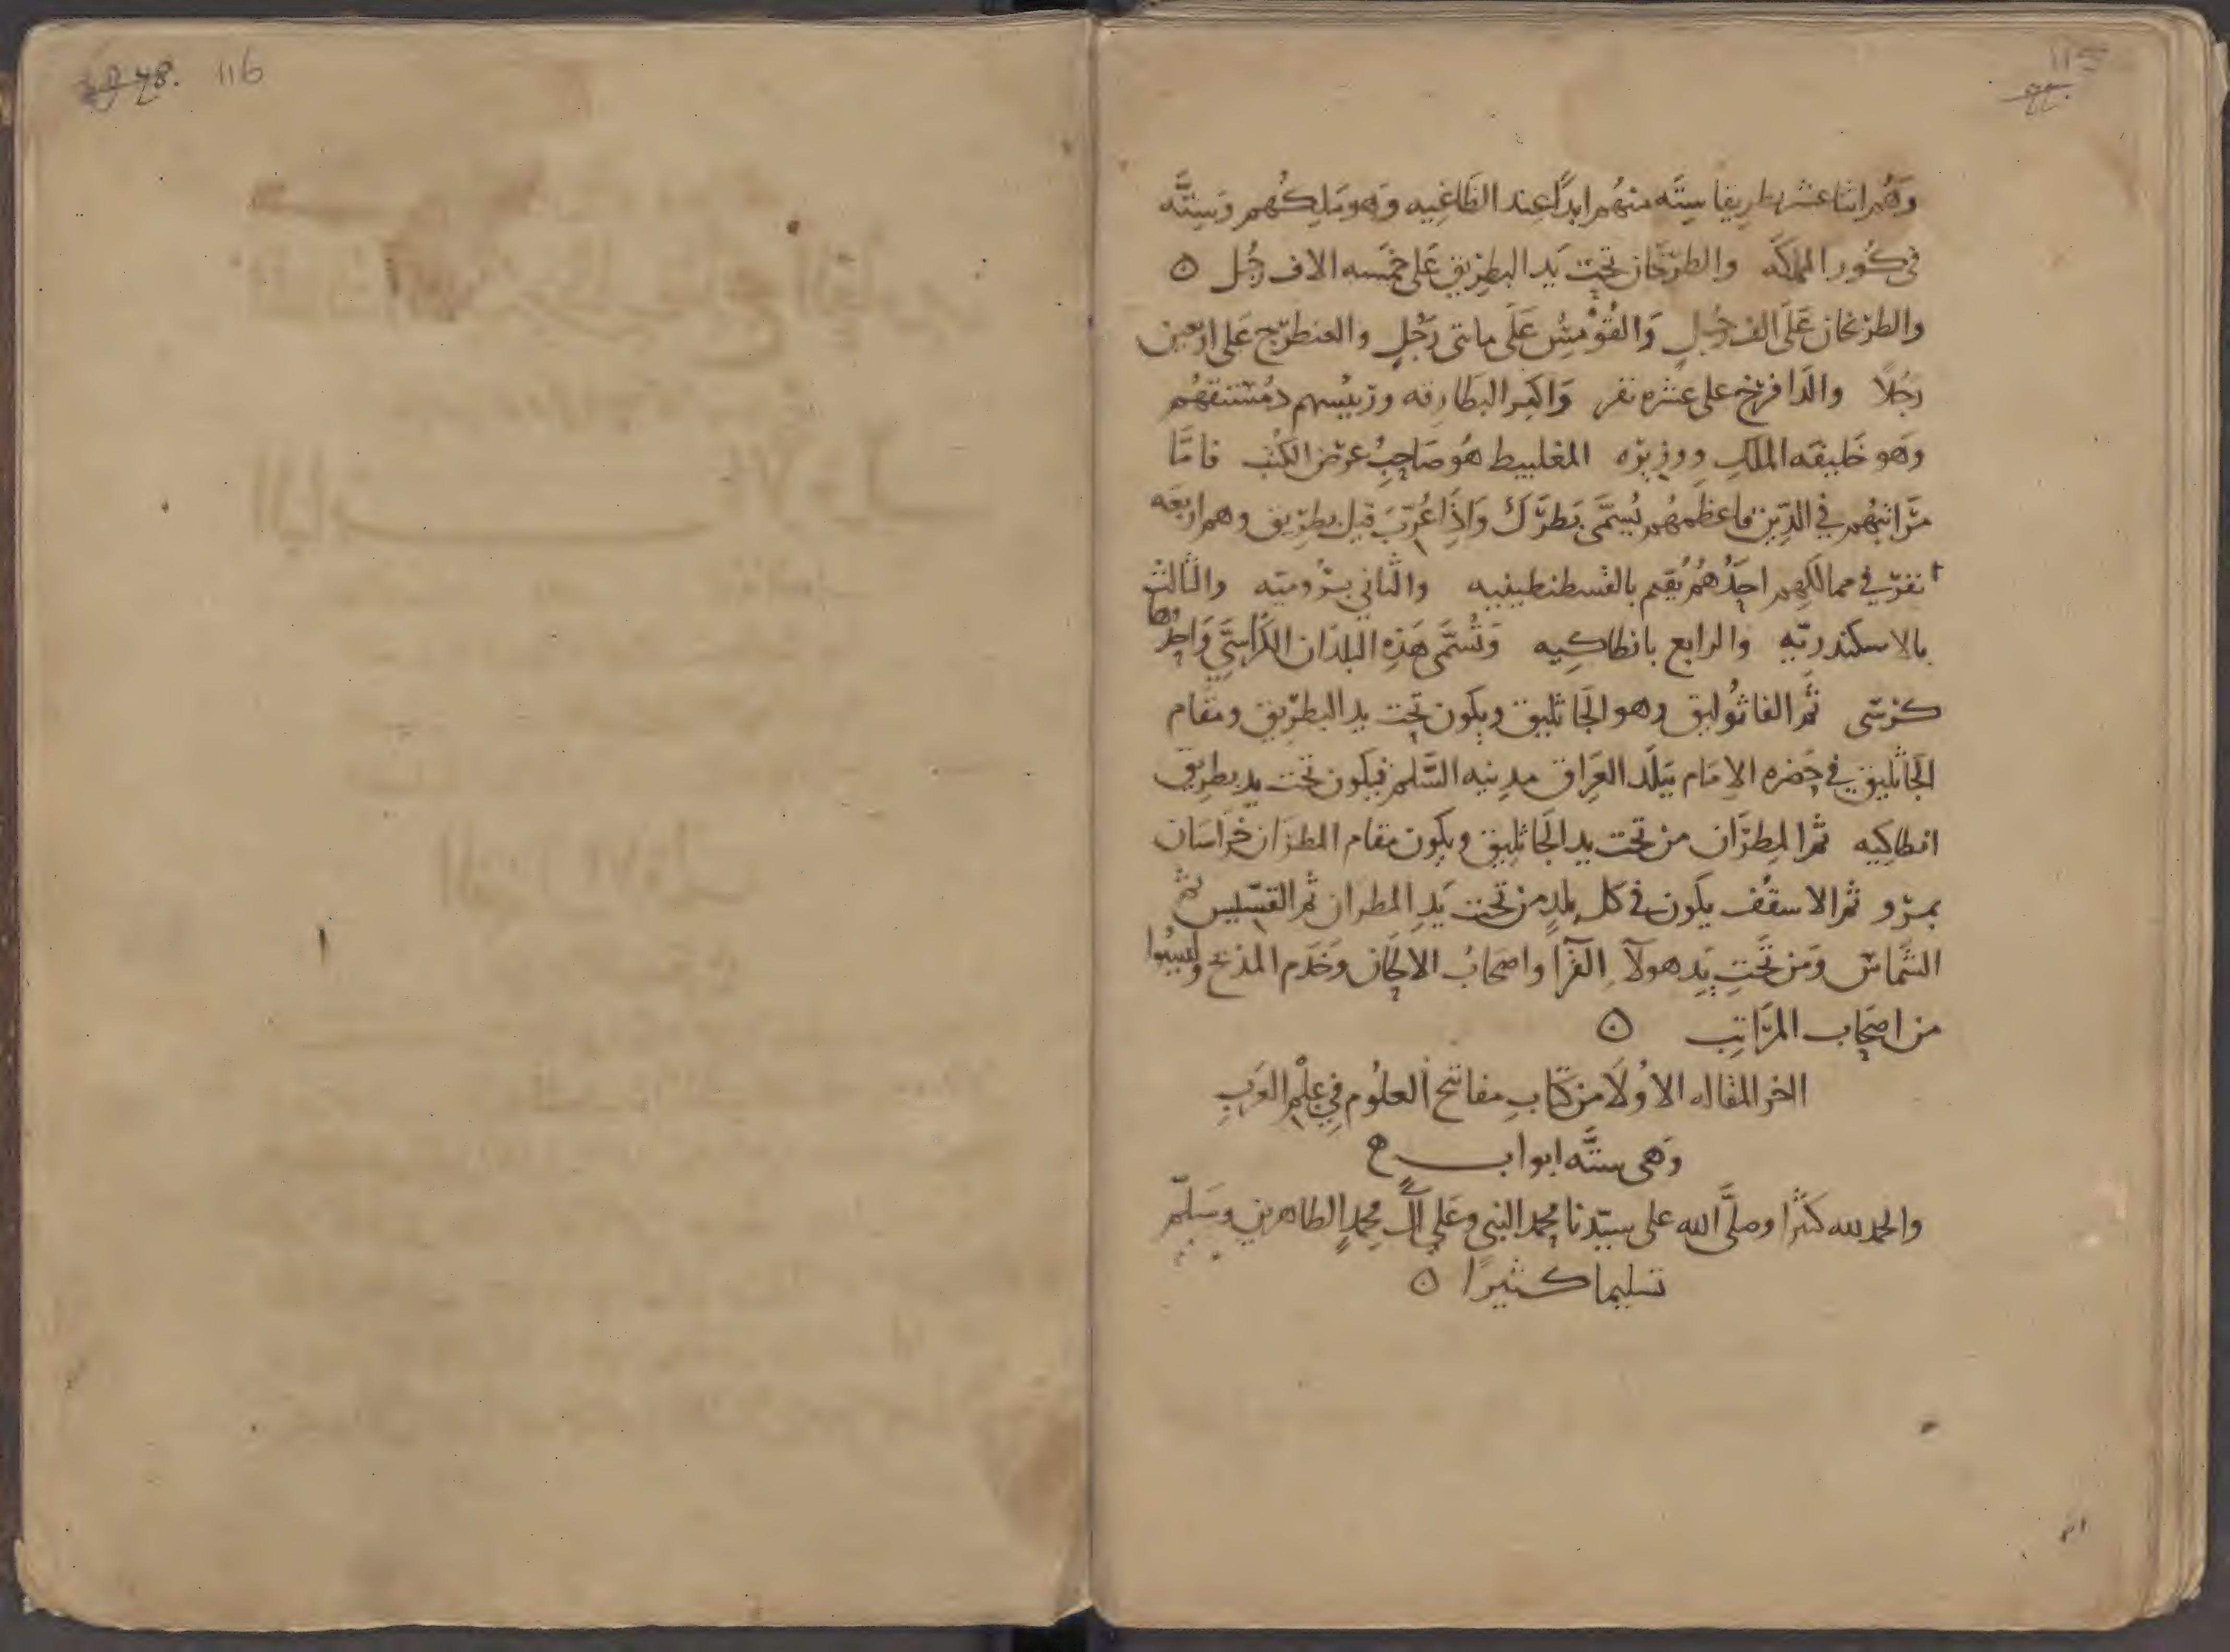 115
وَهُم اثنا عشر بطريقا سِتَّه منهُم ابدًا عِند الطَاغِيه وَهو مَلِكُهم وَسِتَّه
في كُور المملكَه والطرخان تحت يَد البطرِيق عَلى خمسه الاف رجُل ن
والطرنخان عَلى الف رجُلٍ وَالقُوْمسُ عَلَى ماتى رَجُلٍ والعنطرتج عَلى اربعين
رجُلاً والدافرنخ على عشره نفر وَاكبر البطارِقه ورَئيسهم دمُستقهُم
وَهو خَليفه الملكِ ووزيره المغلييط هُو صَاحِبُ عرض الكتب فامَّا
مَرَاتبهُم في الدِّين فاعظمهُم يُسمَّى بَطرَك وَاِذَا عُرِّبَ قيل بطرِيق وهم اربَعه
نفرٍ في ممالكِهِم احَدُهُمُ يُقيم بالقسطنطينيه والثاني برُوميَّه والثالث
بالاسكندريَّه والرابع بانطاكِيه وَتُسَمَّى هَذِه البلدَان الكَرَاسيّ وَاحِدُها
كرسى ثُمَّ القاثُوليق وهو الجَاثليق ويكون تحت يد البطرِيق ومقَام
الجَاثليق في حَضره الاِمَام بِبَلَد العِرَاق مدِينه السَّلم فيكون تحت يد بطرِيق
انطاكِيه ثم المِطرَان من تحت يد الجَاثلِيق ويكون مقام المطرَان خرَاسَان
بمَرْو ثم الاسقُف يكون في كل بلدٍ من تحت يَدِ المطران ثم القسّيس ثمّ
الشَّماسّ وَمن تَحتِ يَدِ هولآءِ القُرآ واصحابُ الالحَان وَخَدَم المذبح وَليسُوا
من اصحَاب المرَاتِب ن
اخر المقاله الاوُلَا من كتَابِ مفاتيح العلُوم في عِلْمِ العَرَبِ
وَهى ستَّه ابواب
والحمد لله كثيرا وصلَّى الله على سيّدنا محمد النبي وعَلى آل محمدٍ الطاهرين وسَلّم
تسليما كثيرًا ن
116